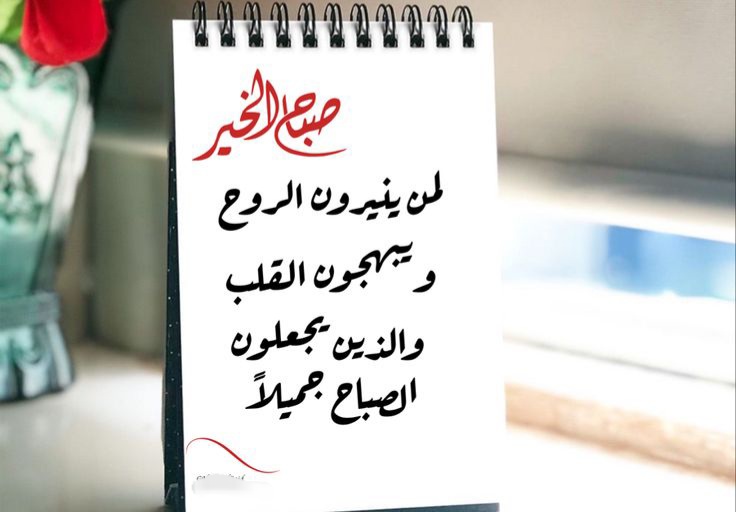 صباح الخير
لمن ينيرون الروح
و يبهجون القلب
والذين يجعلون
الصباح جميلاً